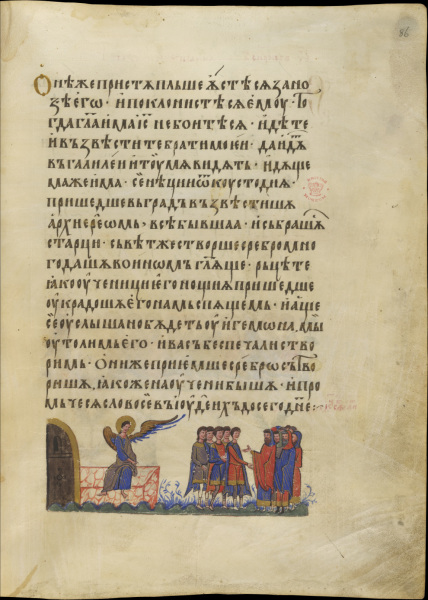 86
Ѡнѣже пристѫпльше ѩстѣ сѧ за но
зѣ его · и поклонистѣ сѧ емоу · То
гда гл҃а има іс҃ не боите сѧ · идѣте
и възвѣстите братиі моеи · да идѫтъ
въ галилеи и тоу мѧ видѧтъ · идѫще
ма же има · се нѣции ѿ коустодиѧ
пришедше въ градъ възвѣстишѧ
архиереѡмъ · всѣ бывшаа · и събравше сѧ
старци · съвѣт же створше сребро мно
го дашѧ воинѡмъ гл҃ѧще · рьцѣте
ꙗко оученици его нощиѧ пришедше
оукрадошѧ его намь спѧщемь · и аще
се оуслышано бѫдетъ оу игемѡна, мы
оутолимь его · и васъ беспечали ство
римь · Они же приемше сребро сътво
ришѧ, ꙗкоже наоучени бышѧ · и про
мъче сѧ слово се въ іоудеихъ до сего дне :